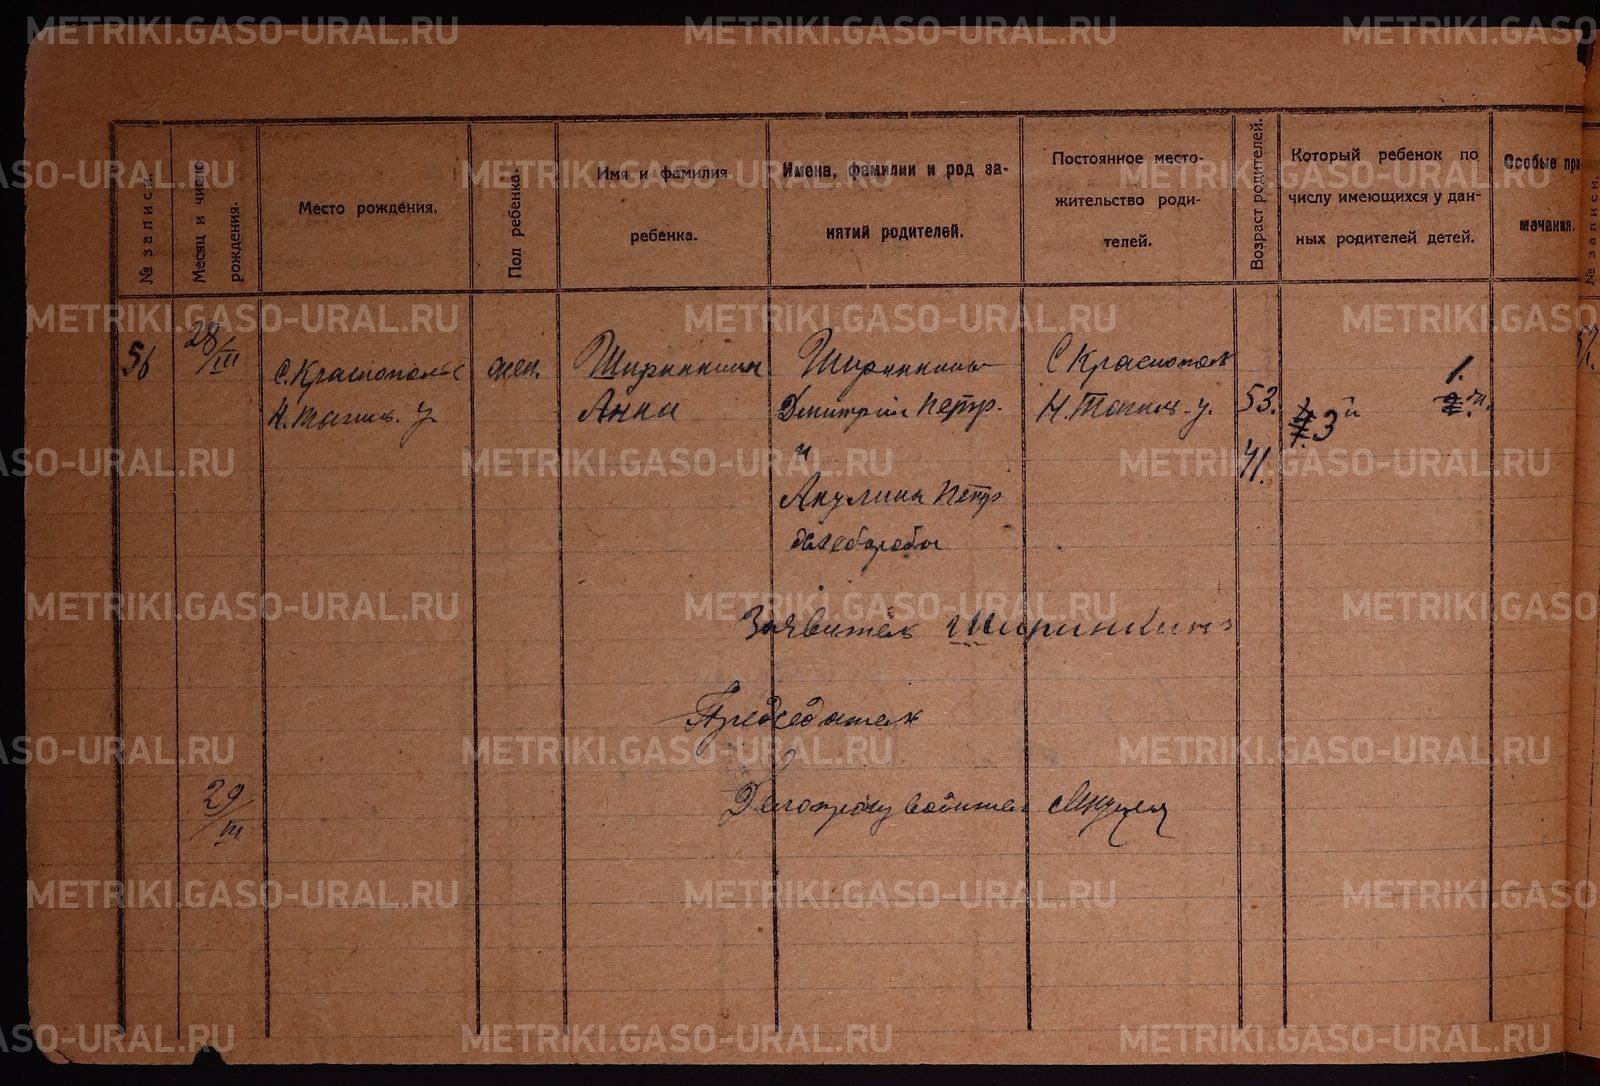 METRIKI.GASO-URAL.RU METRIKI.GASO-URAL.RU METRIKI.GASO-URAL
№ записи.
Месяц и число рождения.
Место рождения.
Пол ребенка.
Имя и фамилия
ребенка.
Имена, фамилии и род за-
нятий родителей.
Постоянное место-
жительство роди-
телей.
Возраст родителей.
Который ребенок по
числу имеющихся у дан-
ных родителей детей.
Особые при-
мечания.
№ записи.
56
28/III
с. Краснополье
Н. Тагил. у.
жен.
Ширинкина
Анна
Ширинкины
Дмитрий Петр.
и
Акулина Петр
хлеборобы
С Краснополь
Н. Тагил. у.
53.
41.
3й
1.
57.
Заявитель Ширинкин
Председатель
29/III
Делопроизводитель